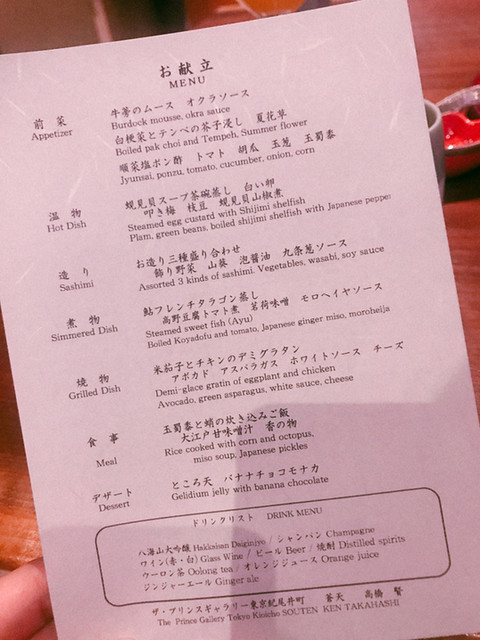 お献立
MENU
前菜
Appetizer
牛蒡のムース　オクラソース
Burdock mousse, okra sauce
白梗菜とテンペの芥子浸し　夏花草
Boiled pak choi and Tempeh, Summer flower
順菜塩ポン酢　トマト　胡瓜　玉葱　玉蜀黍
Jyunsai, ponzu, tomato, cucumber, onion, corn
温物
Hot Dish
蜆見貝スープ茶碗蒸し　白い卵
叩き梅　枝豆　蜆見貝山椒煮
Steamed egg custard with Shijimi shelfish
Plam, green beans, boiled shijimi shelfish with Japanese pepper
造り
Sashimi
お造り三種盛り合わせ
飾り野菜　山葵　泡醤油　九条葱ソース
Assorted 3 kinds of sashimi. Vegetables, wasabi, soy sauce
煮物
Simmered Dish
鮎フレンチタラゴン蒸し
高野豆腐トマト煮　茗荷味噌　モロヘイヤソース
Steamed sweet fish (Ayu)
Boiled Koyadofu and tomato, Japanese ginger miso, moroheija
焼物
Grilled Dish
米茄子とチキンのデミグラタン
アボカド　アスパラガス　ホワイトソース　チーズ
Demi-glace gratin of eggplant and chicken
Avocado, green asparagus, white sauce, cheese
食事
Meal
玉蜀黍と蛸の炊き込みご飯
大江戸甘味噌汁　香の物
Rice cooked with corn and octopus,
miso soup, Japanese pickles
デザート
Dessert
ところ天　バナナチョコモナカ
Gelidium jelly with banana chocolate
ドリンクリスト　DRINK MENU
八海山大吟醸 Hakkaisan Daiginjyo / シャンパン Champagne
ワイン(赤・白) Glass Wine / ビール Beer / 焼酎 Distilled spirits
ウーロン茶 Oolong tea / オレンジジュース Orange juice
ジンジャーエール Ginger ale
ザ・プリンスギャラリー東京紀尾井町　蒼天　高橋　賢
The Prince Gallery Tokyo Kioicho SOUTEN KEN TAKAHASHI